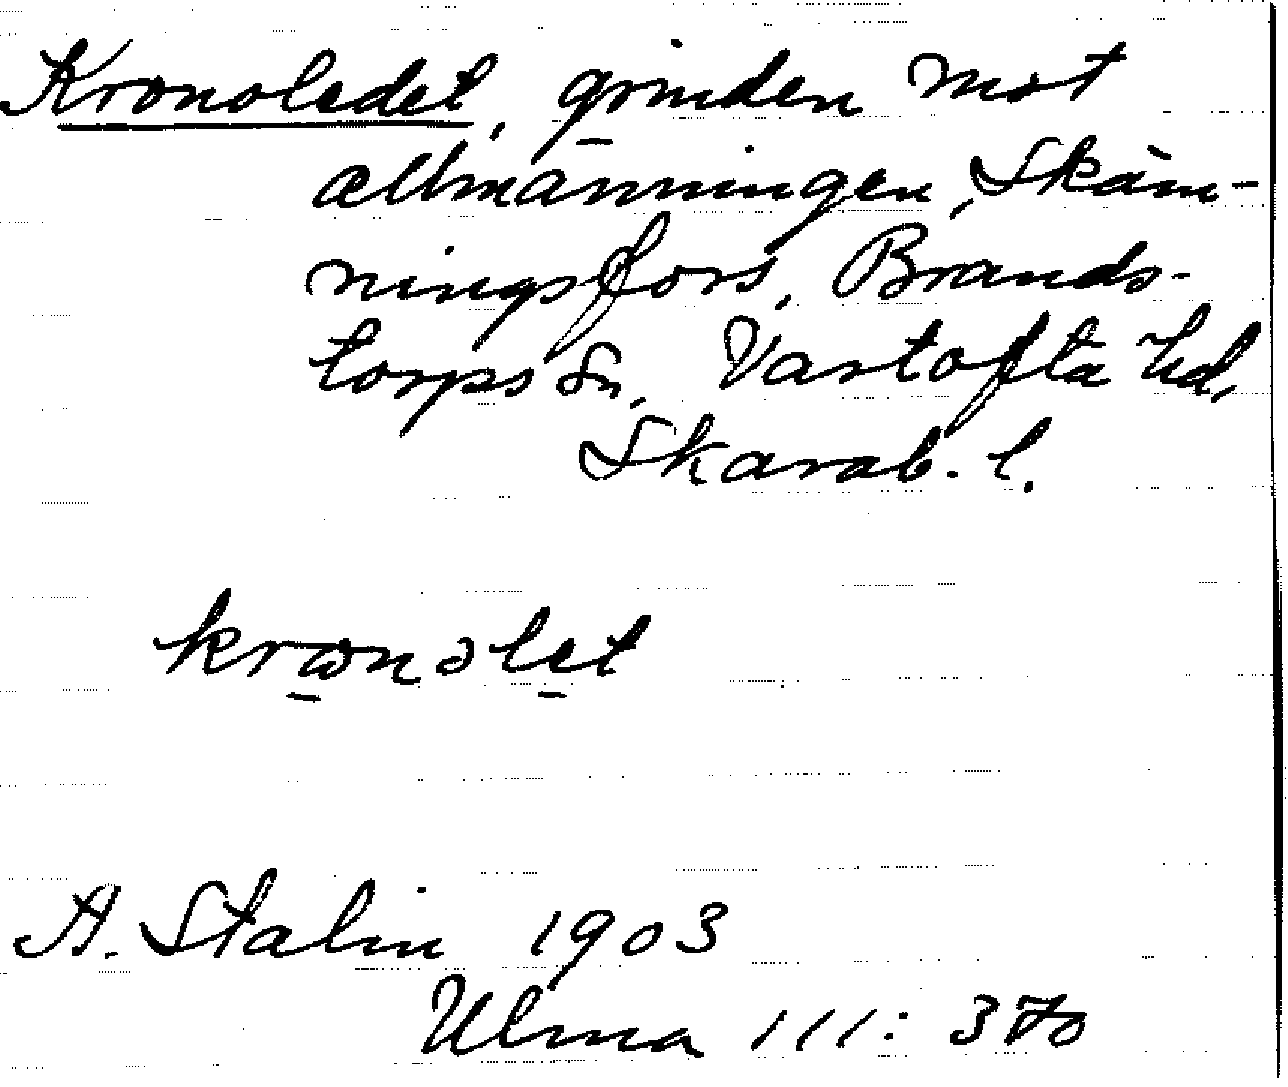 Kronoledet, grinden mot
allmänningen, Skäm-
ningsfors, Brands-
torps sn, Vartofta hd,
Skarab. l.
krωnəlet
A. Stalin 1903
Ulma 111: 370